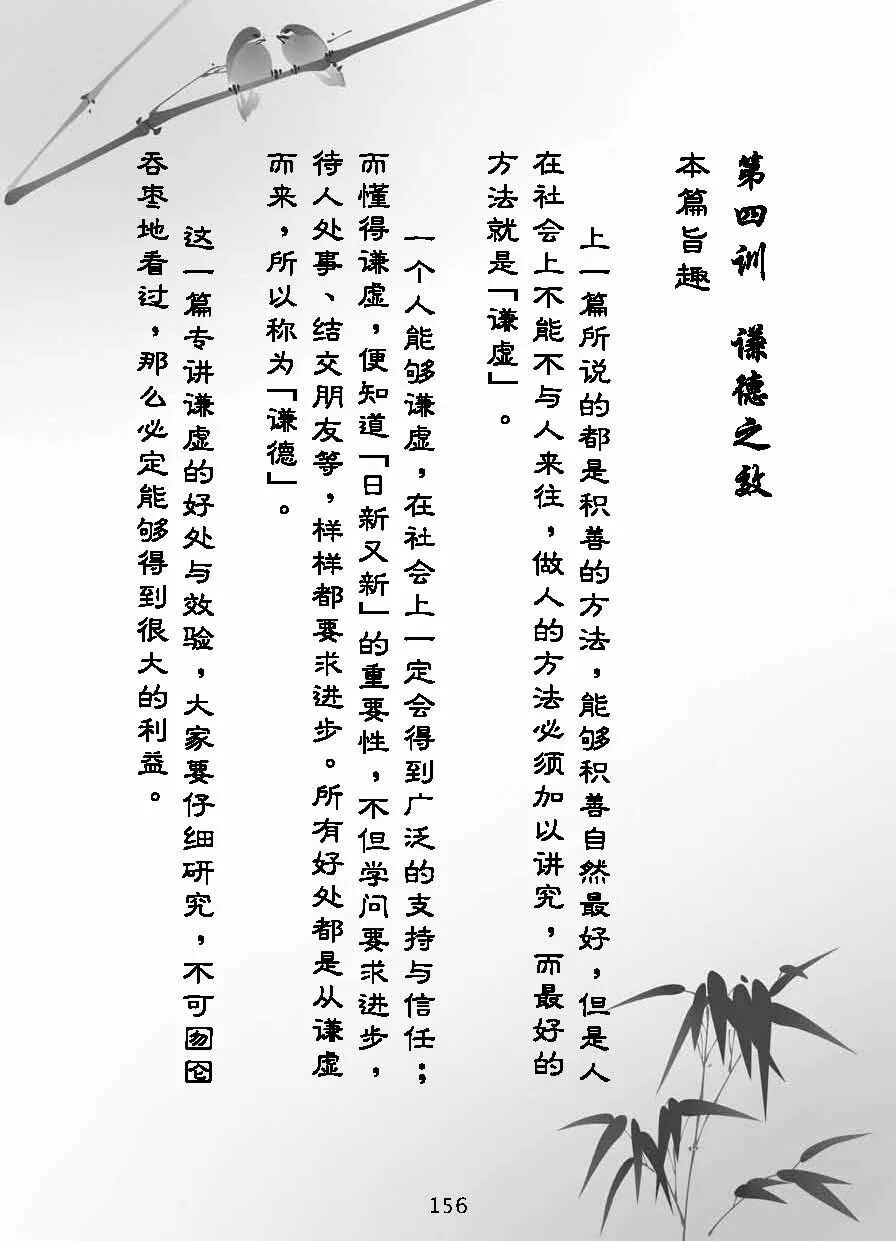 第四训　谦德之效
本篇旨趣
上一篇所说的都是积善的方法，能够积善自然最好，但是人
在社会上不能不与人来往，做人的方法必须加以讲究，而最好的
方法就是「谦虚」。
一个人能够谦虚，在社会上一定会得到广泛的支持与信任；
而懂得谦虚，便知道「日新又新」的重要性，不但学问要求进步，
待人处事、结交朋友等，样样都要求进步。所有好处都是从谦虚
而来，所以称为「谦德」。
这一篇专讲谦虚的好处与效验，大家要仔细研究，不可囫囵
吞枣地看过，那么必定能够得到很大的利益。
156